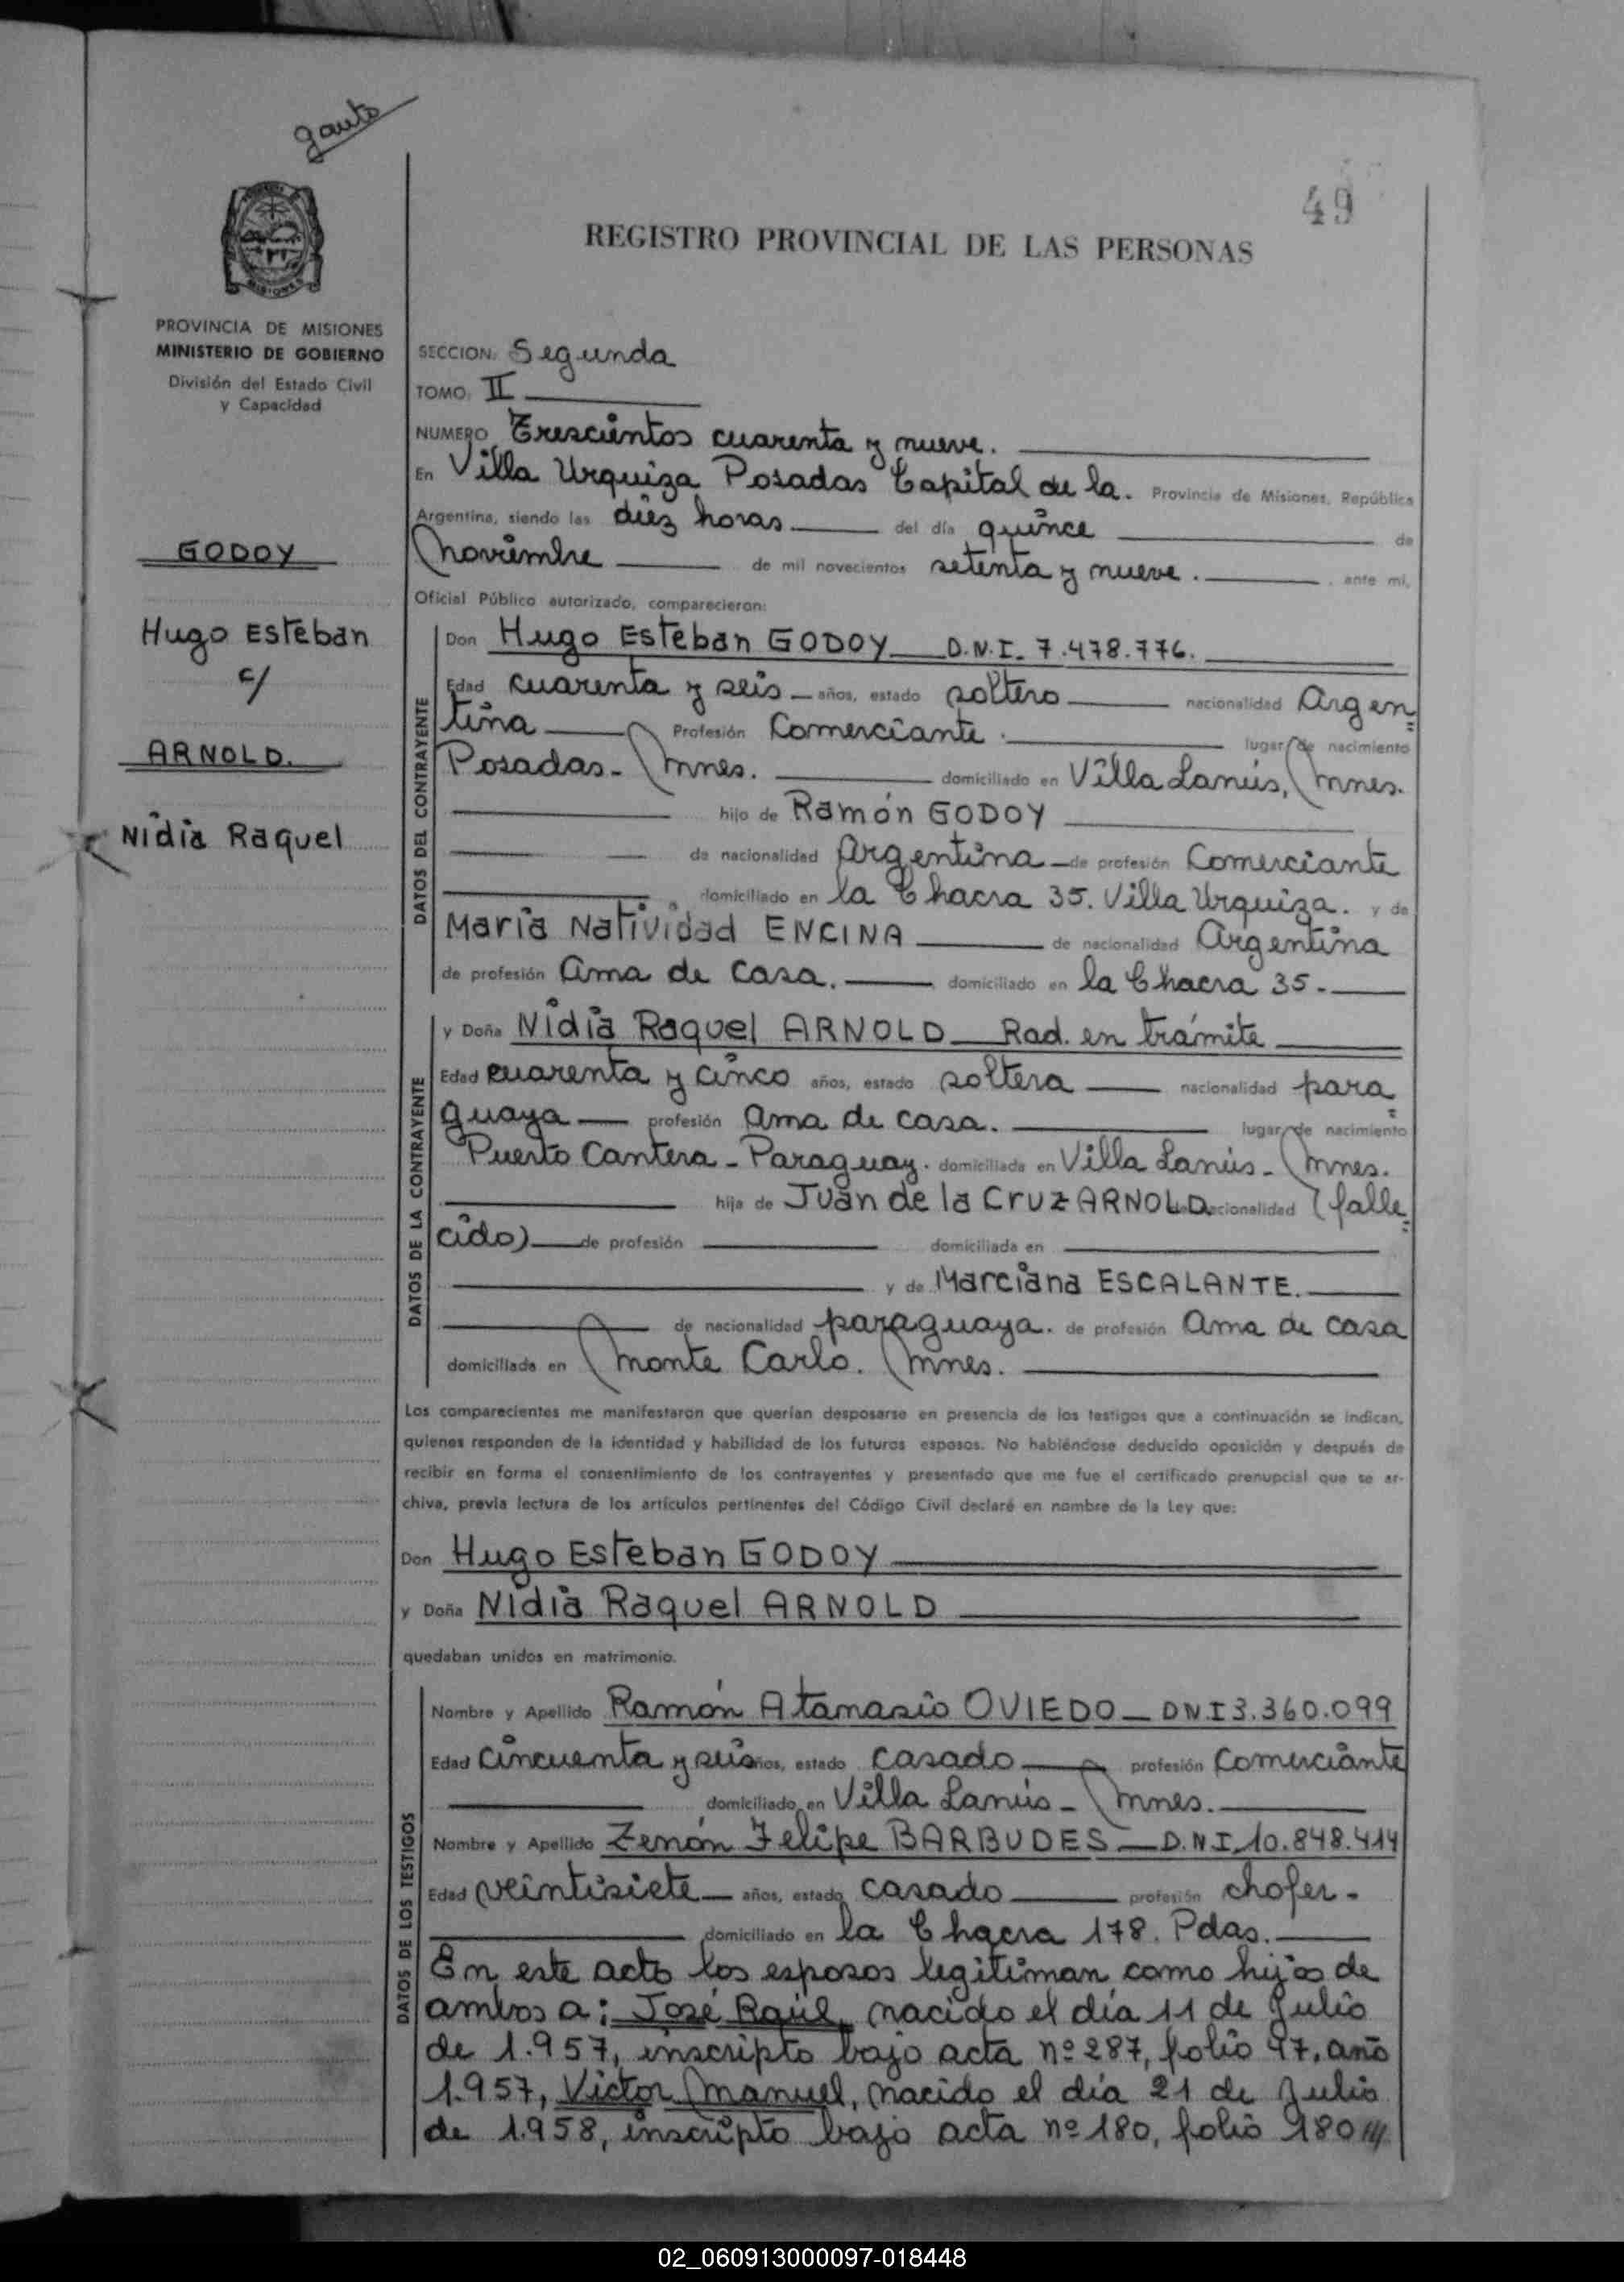 gauto
49
REGISTRO PROVINCIAL DE LAS PERSONAS
MISIONES
PROVINCIA DE MISIONES
MINISTERIO DE GOBIERNO
División del Estado Civil
y Capacidad
GODOY
Hugo Esteban
c/
ARNOLD.
Nidia Raquel
SECCION: Segunda
TOMO: II
NUMERO Trescientos cuarenta y nueve.
En Villa Urquiza Posadas Capital de la. Provincia de Misiones, República
Argentina, siendo las diez horas del día quince de
Noviembre de mil novecientos setenta y nueve. ante mí,
Oficial Público autorizado, comparecieron:
DATOS DEL CONTRAYENTE
Don Hugo Esteban GODOY D.N.I. 7.478.776.
Edad cuarenta y seis años, estado soltero nacionalidad Argen=
tina Profesión Comerciante. lugar de nacimiento
Posadas - Mnes. domiciliado en Villa Lanús, Mnes.
hijo de Ramón GODOY
de nacionalidad Argentina de profesión Comerciante
domiciliado en la Chacra 35. Villa Urquiza. y de
María Natividad ENCINA de nacionalidad Argentina
de profesión Ama de casa. domiciliado en la Chacra 35.
DATOS DE LA CONTRAYENTE
y Doña Nidia Raquel ARNOLD Rad. en trámite
Edad cuarenta y cinco años, estado soltera nacionalidad para=
guaya profesión Ama de casa. lugar de nacimiento
Puerto Cantera - Paraguay. domiciliada en Villa Lanús - Mnes.
hija de Juan de la Cruz ARNOLD de nacionalidad (falle=
cido) de profesión domiciliada en
y de Marciana ESCALANTE.
de nacionalidad paraguaya. de profesión Ama de casa
domiciliada en Monte Carlo. Mnes.
Los comparecientes me manifestaron que querían desposarse en presencia de los testigos que a continuación se indican,
quienes responden de la identidad y habilidad de los futuros esposos. No habiéndose deducido oposición y después de
recibir en forma el consentimiento de los contrayentes y presentado que me fue el certificado prenupcial que se ar-
chiva, previa lectura de los artículos pertinentes del Código Civil declaré en nombre de la Ley que:
Don Hugo Esteban GODOY
y Doña Nidia Raquel ARNOLD
quedaban unidos en matrimonio.
DATOS DE LOS TESTIGOS
Nombre y Apellido Ramón Atanasio OVIEDO DN.I 3.360.099
Edad cincuenta y seis años, estado casado profesión Comerciante
domiciliado en Villa Lanús - Mnes.
Nombre y Apellido Zenón Felipe BARBUDES D.N.I. 10.848.414
Edad veintisiete años, estado casado profesión chofer.
domiciliado en la Chacra 178. Pdas.
En este acto los esposos legitiman como hijos de
ambos a: José Raúl, nacido el día 11 de Julio
de 1.957, inscripto bajo acta nº 287, folio 97, año
1.957, Victor Manuel, nacido el día 21 de Julio
de 1.958, inscripto bajo acta nº 180, folio 180 ///
02_060913000097-018448